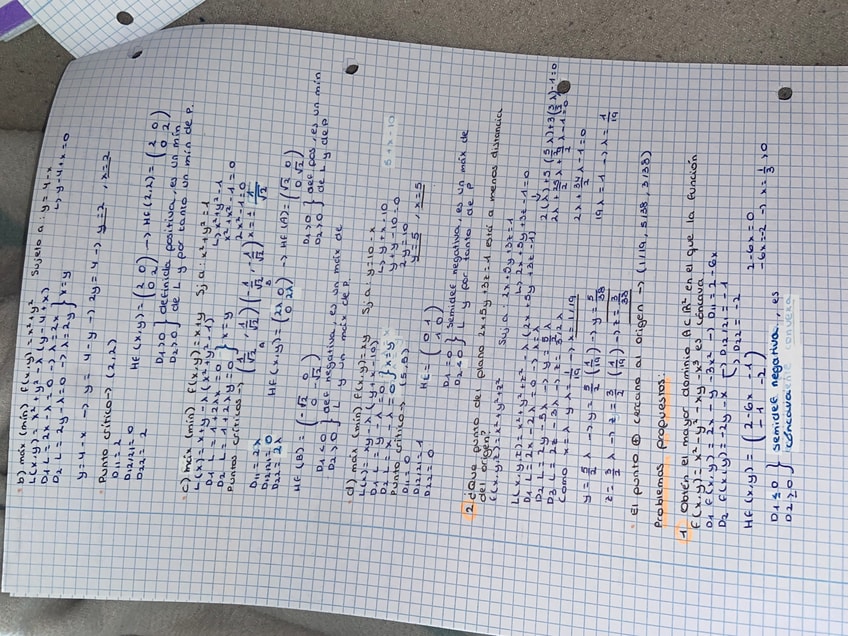 b) máx (min) f(x,y) = x²+y² Sujeto a: y = 4-x
L(x,y) = x²+y² - λ(y-4+x) ↳ y-4+x=0
D1 L = 2x - λ = 0 → λ = 2x } x=y
D2 L = 2y - λ = 0 → λ = 2y
y = 4-x → y = 4-y → 2y = 4 → y=2, x=2
Punto crítico → (2,2)
D11 = 2
D12/21 = 0
D22 = 2
Hf(x,y) = (2 0 / 0 2) → Hf(2,2) = (2 0 / 0 2)
D1>0 } definida positiva, es un min
D2>0 de L y por tanto un min de P.
c) máx (min) f(x,y) = x+y Sj a: x²+y²=1
↳ x²+y²-1
D1 L = 1+2λx = 0 } x=y
D2 L = 1+2λy = 0
x²+x²-1=0
2x²-1=0
x = ± 1/√2
Puntos críticos → (1/√2, 1/√2) (-1/√2, -1/√2)
A B
D11 = 2λ
D12/21 = 0
D22 = 2λ
Hf(x,y) = (2λ 0 / 0 2λ) → Hf(A) = (√2 0 / 0 √2)
D1>0 } def pos, es un min
D2>0 de L y de P
Hf(B) = (-√2 0 / 0 -√2)
D1<0 } def negativa, es un máx de
D2>0 L y un máx de P.
d) máx (min) f(x,y) = xy Sj a: y=10-x
L(x) = xy - λ(y+x-10) ↳ y+x-10
D1 L = y - λ = 0 } x=y
D2 L = x - λ = 0
y+y-10=0
2y=10
y=5, x=5
Punto crítico → (5,5)
D11 = 0
D12/21 = 1
D22 = 0
Hf = (0 1 / 1 0)
D1=0 } Semidef negativa, es un máx de
D2<0 L y por tanto de P
2 ¿Qué punto del plano 2x+5y+3z=1 está a menos distancia
del origen?
f(x,y,z) = x²+y²+z² Sj a: 2x+5y+3z=1
L(x,y,z) = x²+y²+z² - λ(2x+5y+3z-1) ↳ 2x+5y+3z-1=0
D1 L = 2x - 2λ → x=λ
D2 L = 2y - 5λ → y = 5/2 λ
D3 L = 2z - 3λ → z = 3/2 λ
2(λ)+5(5/2 λ)+3(3/2 λ)-1=0
2λ + 25/2 λ + 9/2 λ - 1 = 0
2λ + 34/2 λ - 1 = 0
19λ = 1 → λ = 1/19
Como x=λ y λ = 1/19 → x = 1/19
y = 5/2 λ → y = 5/2 (1/19) → y = 5/38
z = 3/2 λ → z = 3/2 (1/19) → z = 3/38
• El punto ⊕ cercano al origen → (1/19, 5/38, 3/38)
Problemas propuestos:
1 Obtén el mayor dominio A⊂R² en el que la función
f(x,y) = x²-y²-xy-x³ es cóncava
D1 f(x,y) = 2x-y-3x² → D11 = 2-6x
D2 f(x,y) = -2y-x → D12/21 = -1
↳ D22 = -2
Hf(x,y) = (2-6x -1 / -1 -2)
2-6x=0
-6x=-2 → x = 1/3 >0
D1 ≤ 0 } semidef negativa, es
D2 ≥ 0 cóncava